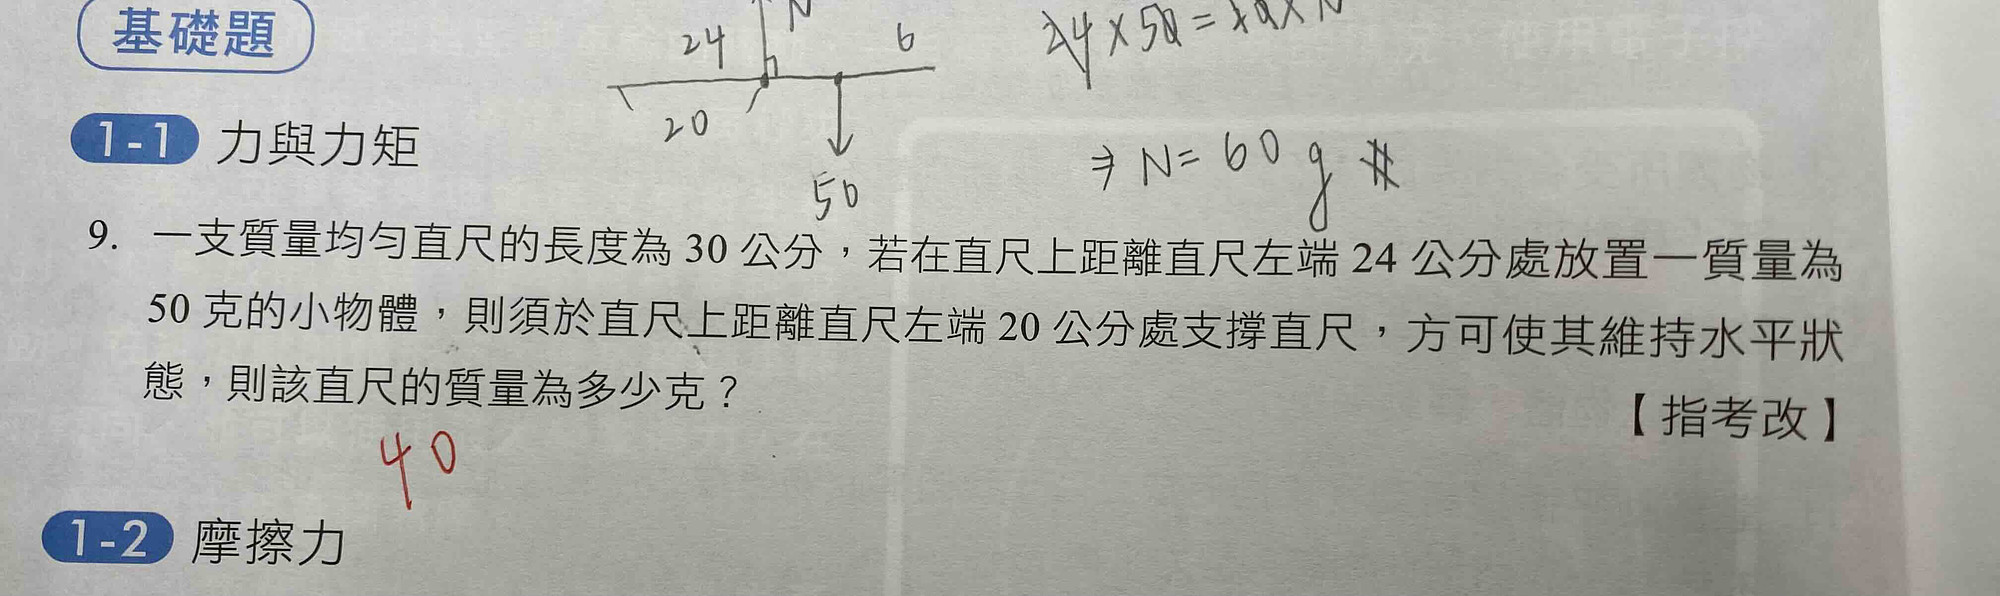 基礎題
24 N 6
20
50
24×50=20×N
⇒ N=60g #
1-1 力與力矩
9. 一支質量均勻直尺的長度為 30 公分，若在直尺上距離直尺左端 24 公分處放置一質量為
50 克的小物體，則須於直尺上距離直尺左端 20 公分處支撐直尺，方可使其維持水平狀
態，則該直尺的質量為多少克？
【指考改】
40
1-2 摩擦力